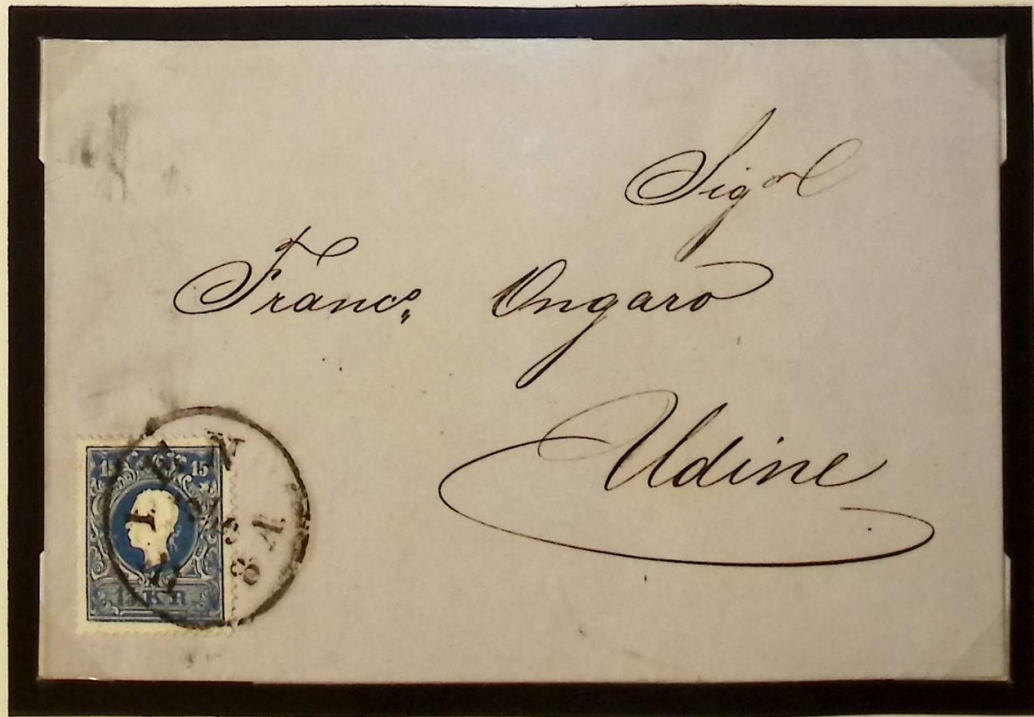 Sig.
Franc.º Ongaro
Udine
15 15
15 KR